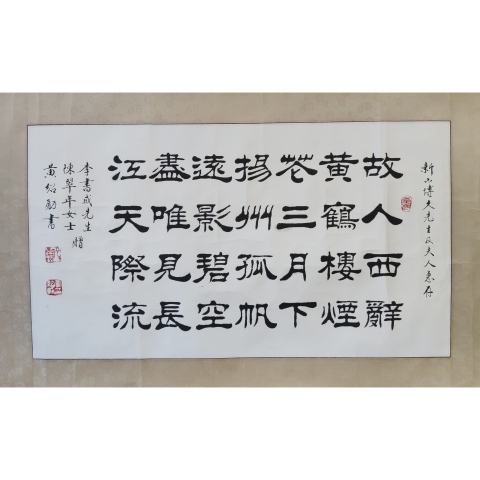 新山博夫先生及夫人惠存
故人西辭
黃鶴樓煙
花三月下
揚州孤帆
遠影碧空
盡唯見長
江天際流
李書成先生
陳翠年女士 贈
黃紹勛書